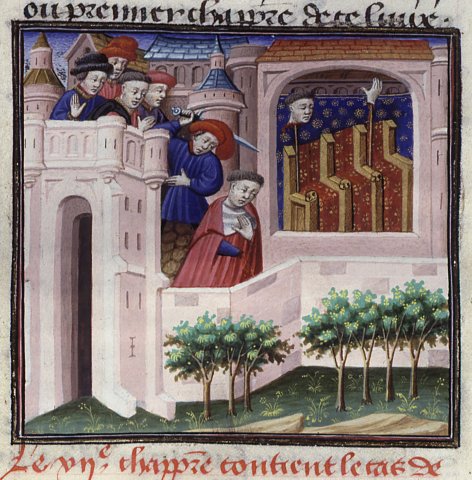 ou premier chapp̄re de ce liure.
Le vijᵉ chapp̄re contient le cas de